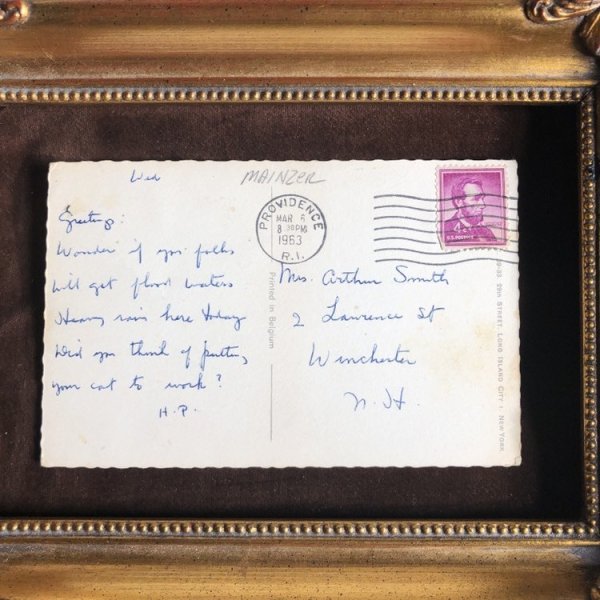 Wed
MAINZER
Greetings:
Wonder if you folks
will get flood waters
Heavy rain here today
Did you think of putting
your cat to work?
H.P.
PROVIDENCE
MAR 6
8 30PM
1963
R.I.
4¢
U.S. POSTAGE
Mrs. Arthur Smith
2 Lawrence St
Winchester
N.H.
Printed in Belgium
29th STREET, LONG ISLAND CITY 1. NEW YORK